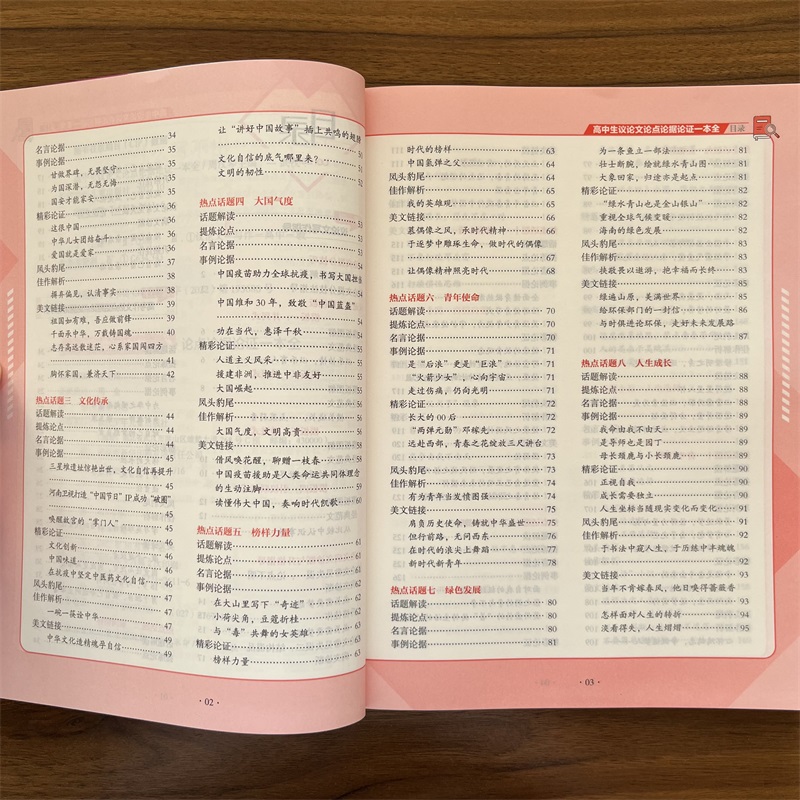 名言论据 34
事例论据 35
甘做界碑，无畏坚守 35
为国深潜，无怨无悔 35
国安才能家安 35
精彩论证 36
这很中国 36
中华儿女团结奋斗 36
爱国就是爱家 36
凤头豹尾 37
佳作解析 38
摒弃偏见，认清事实 38
美文链接 39
祖国如有难，吾应做前锋 39
千面承中华，万载铸国魂 40
志存高远数迷茫，心系家国闯四方
41
胸怀家国，兼济天下 42
热点话题三 文化传承
话题解读 44
提炼论点 44
名言论据 44
事例论据 45
三星堆遗址惊艳出世，文化自信再提升
45
河南卫视打造“中国节日”IP成功“破圈”
45
唤醒故宫的“掌门人” 45
精彩论证 46
文化创新 46
中国味道 46
在抗疫中坚定中医药文化自信 46
凤头豹尾 47
佳作解析 47
一碗一筷论中华 47
美文链接 49
中华文化造精魂孕自信 49
让“讲好中国故事”插上共鸣的翅膀
文化自信的底气哪里来？ 51
文明的韧性 52
热点话题四 大国气度
话题解读
提炼论点 53
名言论据
事例论据
中国疫苗助力全球抗疫，书写大国担当
54
中国维和30年，致敬“中国蓝盔”
54
功在当代，惠泽千秋 54
精彩论证 55
人道主义风采 55
援建非洲，推进中非友好 55
大国崛起 55
凤头豹尾 56
佳作解析 56
大国气度，文明高贵 56
美文链接 58
借风唤花醒，聊赠一枝春 58
中国疫苗援助是人类命运共同体理念
的生动注脚 59
读懂伟大中国，奏响时代凯歌 60
热点话题五 榜样力量
话题解读 61
提炼论点 61
名言论据 61
事例论据 62
在大山里写下“奇迹” 62
小荷尖角，豆蔻折桂 62
与“毒”共舞的女英雄 62
精彩论证 63
榜样力量 63
· 02 ·
高中生议论文论点论据论证一本全 目录
时代的榜样 63
中国氢弹之父 64
凤头豹尾 64
佳作解析 65
我的英雄观 65
美文链接 66
慕偶像之风，承时代精神 66
于逐梦中雕琢生命，做时代的偶像
67
让偶像精神照亮时代 68
热点话题六 青年使命
话题解读 70
提炼论点 70
名言论据 70
事例论据 71
是“后浪”更是“巨浪” 71
“火箭少女”，心向宇宙 71
走过伤痛，仍向光明 71
精彩论证 72
长大的00后 72
“两弹元勋”邓稼先 72
远赴西部，青春之花绽放三尺讲台
73
凤头豹尾 73
佳作解析 74
有为青年当发愤图强 74
美文链接 75
肩负历史使命，铸就中华盛世 75
但行前路，无问西东 76
在时代的浪尖上舞蹈 77
新时代新青年 78
热点话题七 绿色发展
话题解读 80
提炼论点 80
名言论据 80
事例论据 81
为一条鱼立一部法 81
壮士断腕，绘就绿水青山图 81
大象回家，归途亦是起点 81
精彩论证 82
“绿水青山也是金山银山” 82
重视全球气候变暖 82
海南的绿色发展 82
凤头豹尾 83
佳作解析 83
挟敬畏以遨游，抱幸福而长终 83
美文链接 85
绿遍山原，美满世界 85
给环保部门的一封信 86
与时俱进论环保，走好未来发展路
87
热点话题八 人生成长
话题解读 88
提炼论点 88
名言论据 88
事例论据 89
我命由我不由天 89
是导师也是园丁 89
母长颈鹿与小长颈鹿 89
精彩论证 90
正视自我 90
成长需要独立 90
人生坐标当随现实变化而变化 91
凤头豹尾 91
佳作解析 92
于书法中窥人生，于历练中丰魂魄
92
美文链接 93
当年不肯嫁春风，他日唤得蔷薇香
93
怎样面对人生的转折 94
淡看得失，人生熠熠 95
· 03 ·